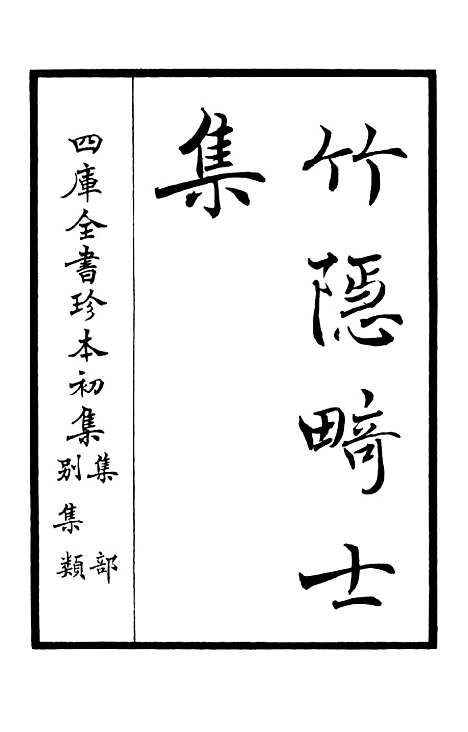 竹隱畸士
集
四庫全書珍本初集
集部
別集類